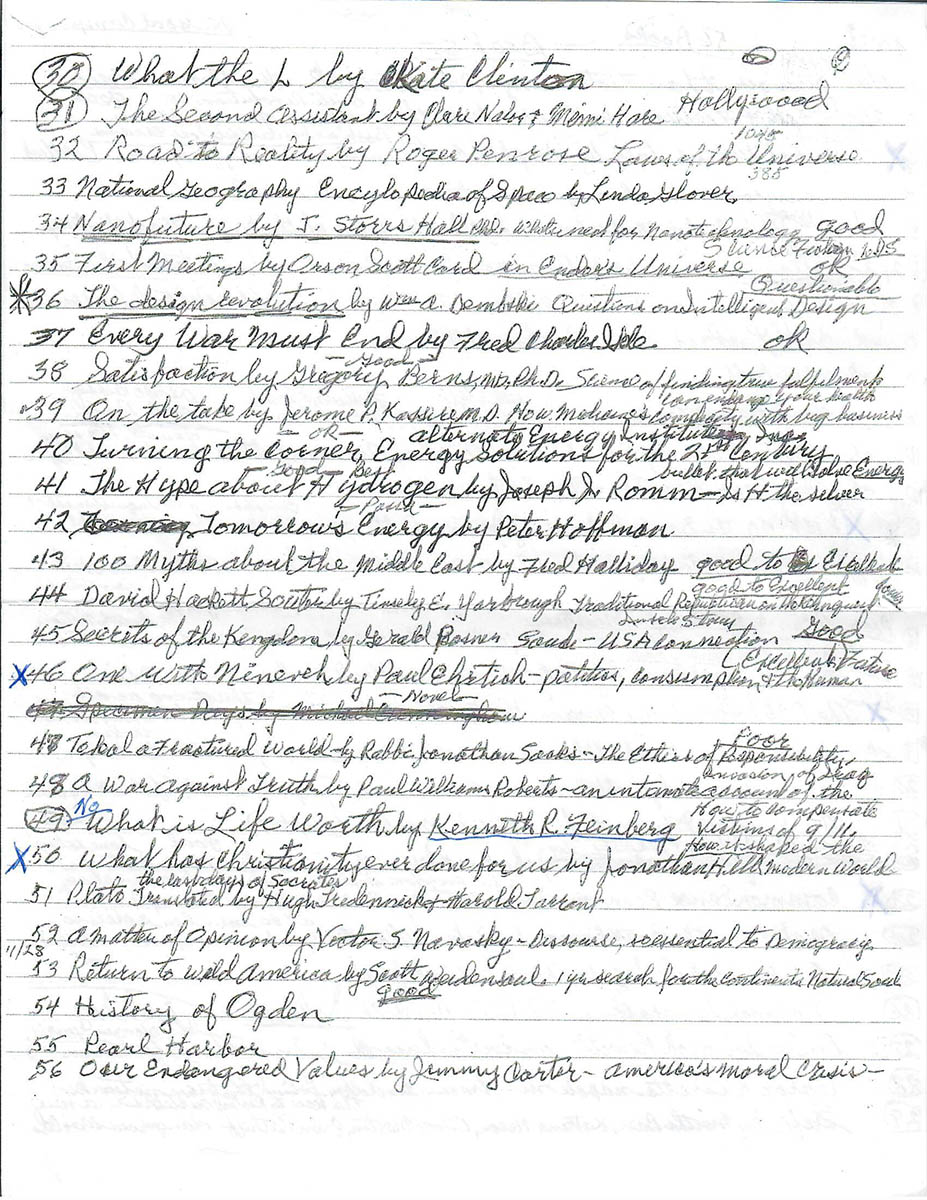 30 What the L by Kate Clinton
31 The Second assistant by Clare Naylor & Mimi Hare Hollywood
1045
32 Road to Reality by Roger Penrose Laws of the Universe
385
33 National Geography Encylopedia of Space by Linda Glover
34 Nanofuture by J. Storrs Hall PhD. Whats next for Nanotechnology good
Science Fiction LDS
35 First Meetings by Orson Scott Card in Endors Universe ok
Questionable
36 The design revolution by Wm A. Dembski Questions on Intelligent Design
37 Every War Must End by Fred Charles Ikle ok
- Good -
38 Satisfaction by Gregory Berns, MD, Ph.D. Science of finding true fulfilment
can endanger your health
39 On the take by Jerome P. Kassirer M.D. How Medicines complicity with big business
- ok - alternate Energy Institute
40 Turning the Corner, Energy Solutions for the 21st Century
Good Best bullet that will solve Energy
41 The Hype about Hydrogen by Joseph J. Romm - Is H the silver
42 Tomorrows Energy by Peter Hoffman
43 100 Myths about the Middle East by Fred Halliday good to Excellent
good to Excellent
44 David Hackett Souter by Tinsley E. Yarbrough Traditional Republican on Rehnquist
45 Secrets of the Kengdom by Gerald Posner Saudi - USA connection Good
Excellent Future
46 One With Nineveh by Paul Ehrlich - politics, consumption & the Human
- Novel -
47 Specimen Days by Michael Cunningham
Poor
47 To heal a Fractured World - by Rabbi Jonathan Sacks - The Ethics of Responsibility
invasion of Iraq
48 A War against Truth by Paul Williams Roberts - an intimate account of the
No How to compensate
49 What is Life Worth by Kenneth R. Feinberg Victims of 9/11.
How it shaped the
50 What has Christianity ever done for us by Jonathan Hill Modern World
the last days of Socrates
51 Plato Translated by Hugh Tredennick & Harold Tarrant
52 A matter of Opinion by Victor S. Navasky - Discourse, so essential to Democracy
11/28
53 Return to wild America by Scott Weidensaul. 1 yr search for the Continents Natural Soul
good
54 History of Ogden
55 Pearl Harbor
56 Our Endangered Values by Jimmy Carter - America's Moral Crisis -